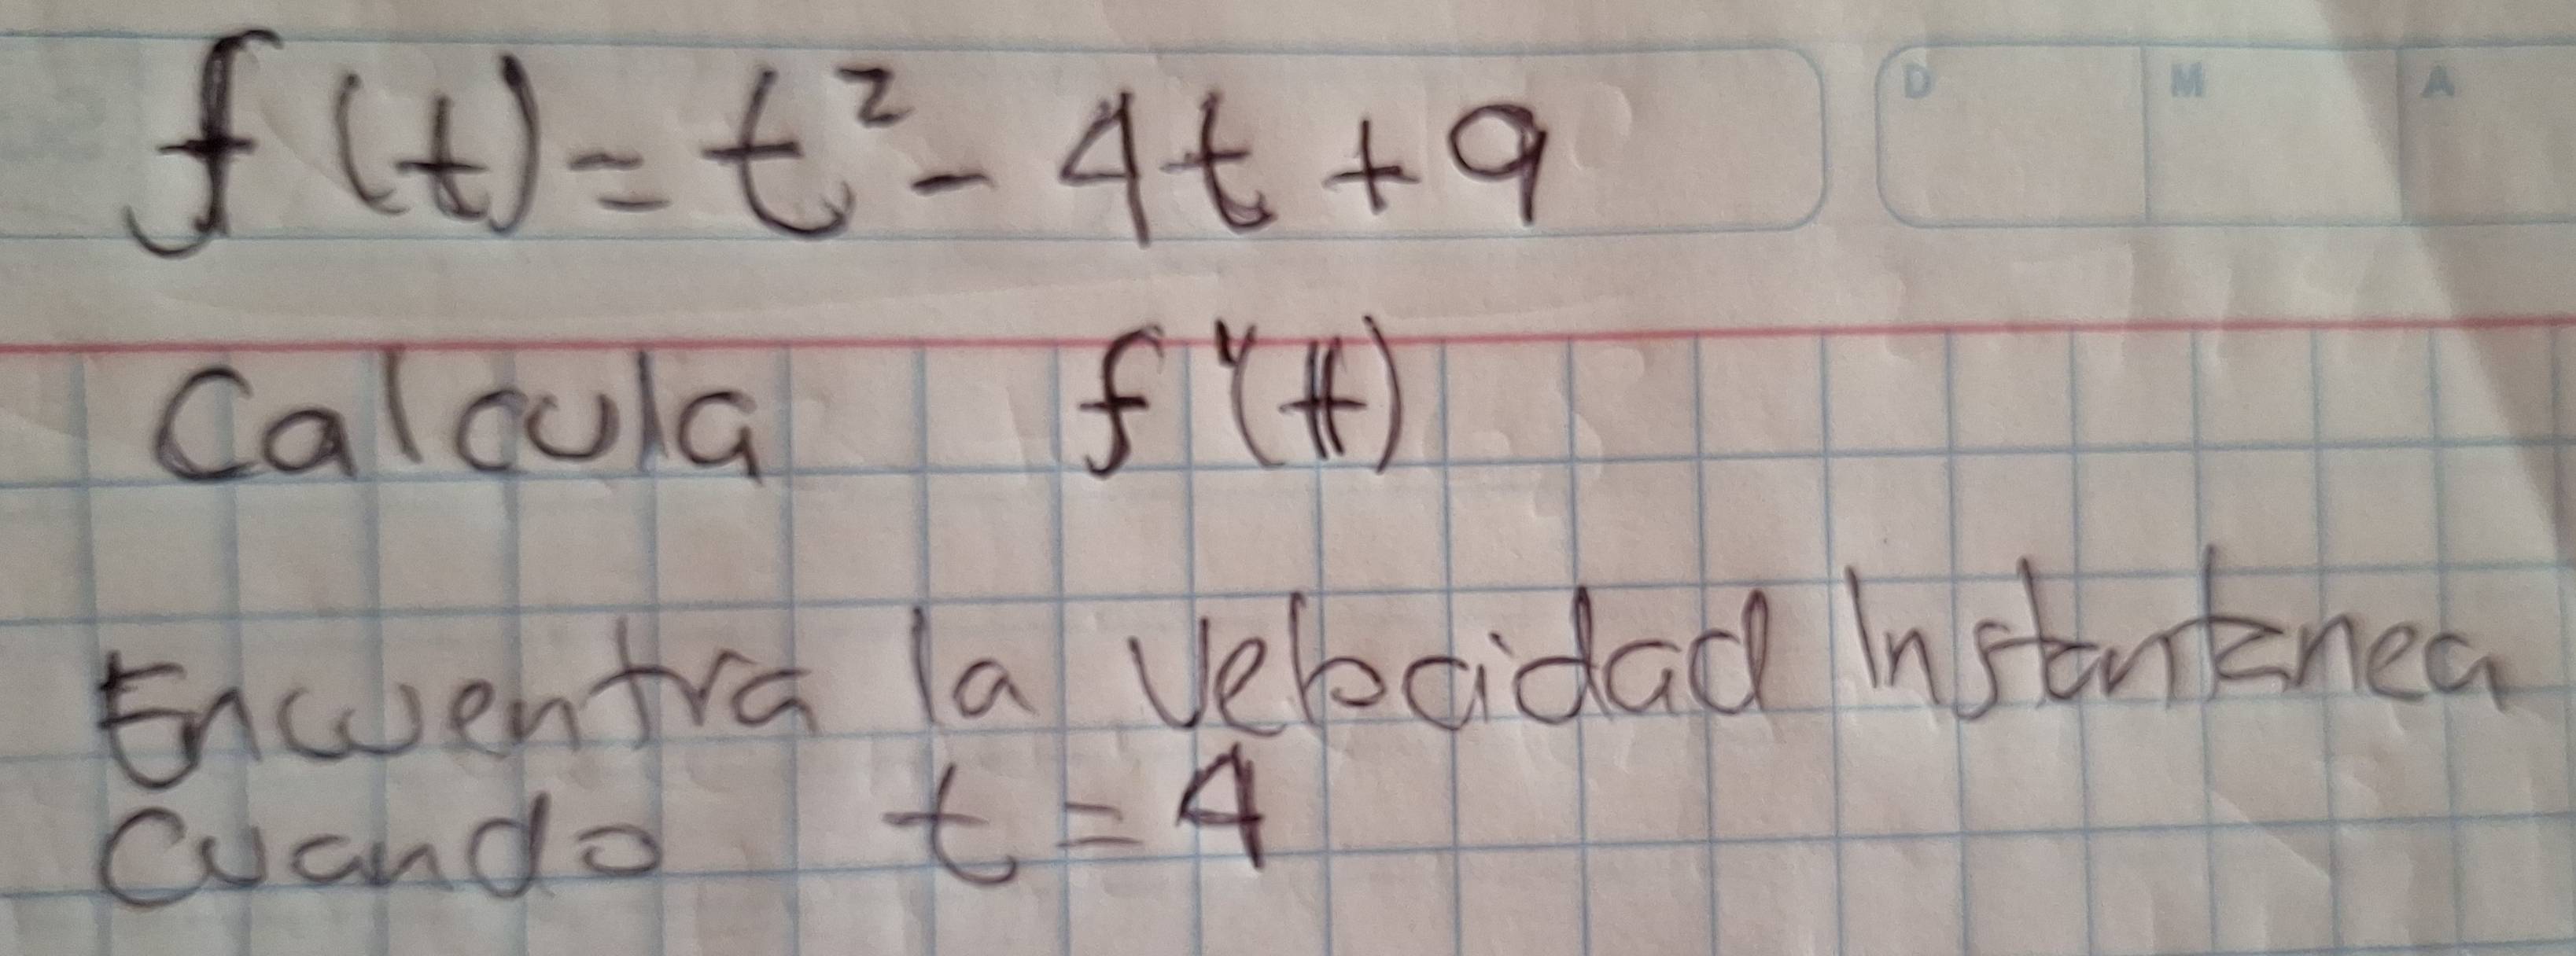 f(t) = t² - 4t + 9
D M A
Calcula f''(t)
Encuentra la velocidad Instantanea
Cuando t = 4